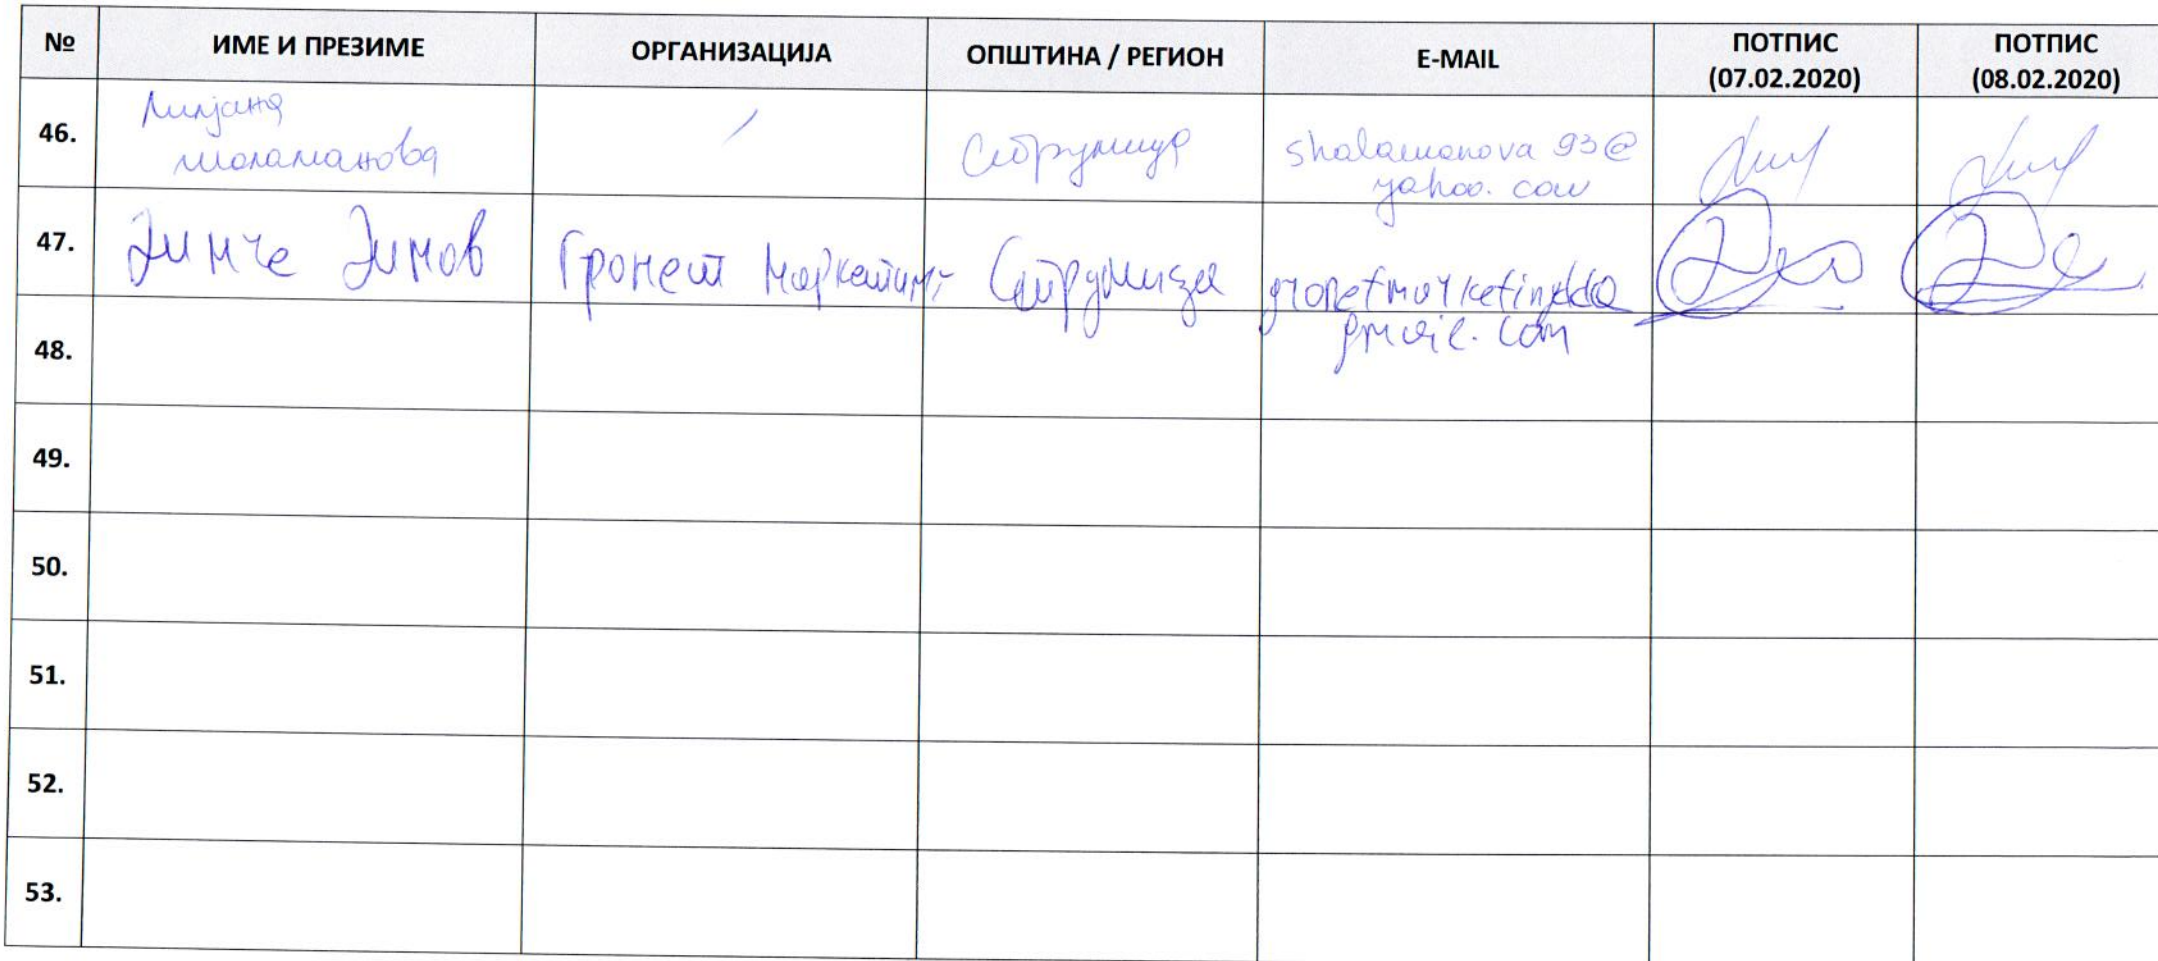 № ИМЕ И ПРЕЗИМЕ ОРГАНИЗАЦИЈА ОПШТИНА / РЕГИОН E-MAIL ПОТПИС (07.02.2020) ПОТПИС (08.02.2020)
46. Лилјана Шаламанова / Струмица shalamanova93@
yahoo.com
47. Димче Димов Гронет Маркетинг Струмица gronetmarketingdd@
gmail.com
48.
49.
50.
51.
52.
53.